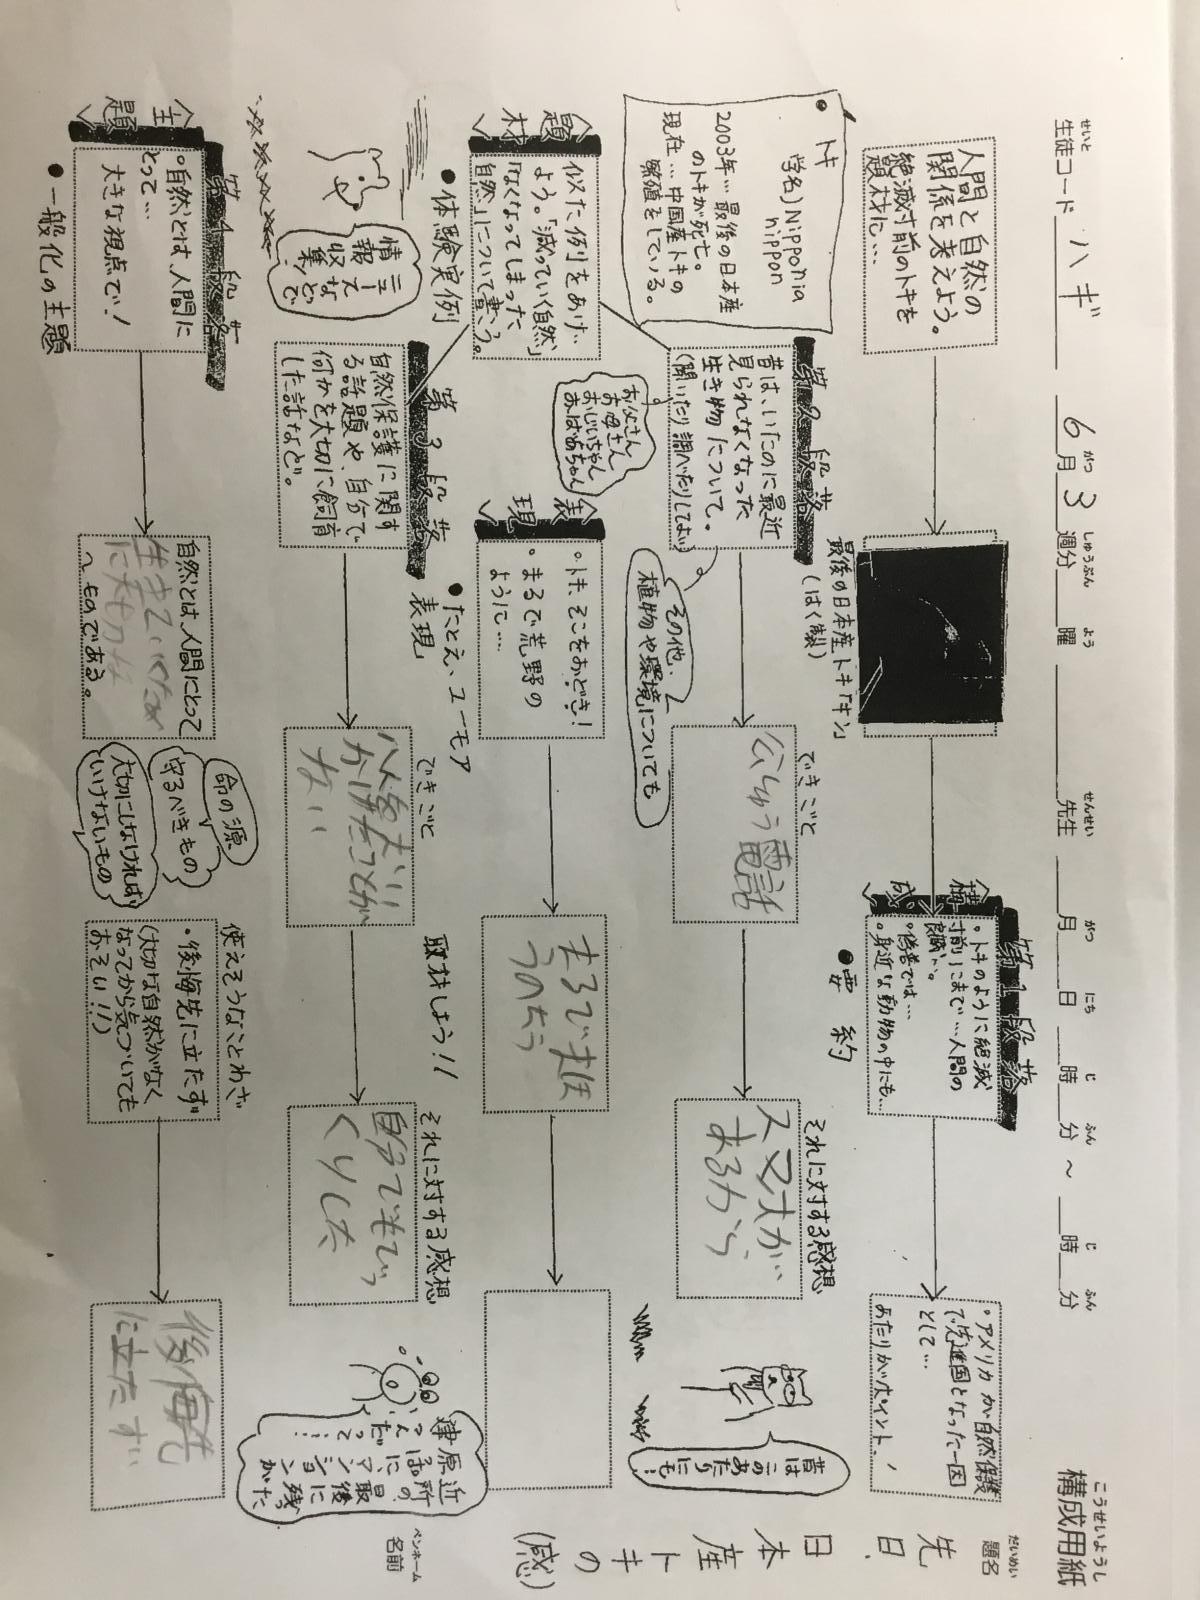 こうせいようし
構成用紙
せいと
生徒コード ハギ 6月3週分 曜 先生 月 日 時 分 〜 時 分
がつ しゅうぶん よう せんせい がつ にち じ ふん じ ふん
だいめい
題名
先日、
日本産トキの
(感)
ペンネーム
名前
人間と自然の
関係を考えよう。
絶滅寸前のトキを
題材に…
最後の日本産トキ「キン」
(はく製)
第1段落
<構成>
・トキのように絶滅
寸前にここまで…人間の
良識が。
・偽善では…
・身近な動物の中にも…
●要約
・アメリカが自然保護
で先進国となった一因
として…
あたりがポイント!
トキ
学名)Nipponia
nippon
2003年…最後の日本産
のトキが死亡。
現在…中国産トキの
繁殖をしている。
第2段落
昔は、いたのに最近
見られなくなった
生き物について。
(聞いたり調べたりしてよい)
お父さん
お母さん
おじいちゃん
おばあちゃん
その他、
植物や環境についても
できごと
公しゅう電話
それに対する感想
スマホが
あるから
昔はこの
あたりにも…
<題材>
似た例りをあげ
よう。「減っていく自然」
「なくなってしまった
自然」について書こう。
●体験実例
<表現>
・トキ、そこをおどき!
・まるで荒野の
ように…
●たとえ、ユーモア
表現
まるで
のよう
第3段落
自然保護に関す
る話題や、自分で
何かを大切に飼育
した話など。
ニュースなどで
情報収集!
できごと
取材しよう!!
それに対する感想
自分でもびっ
くりした
近所の、最後に残った
原っぱに、マンションが
建つんだって…
第4段落
<主題>
・自然とは、人間に
とって…
大きな視点で!
●一般化の主題
自然とは、人間にとって
生きていくため
に大切な
〜ものである。
命の源
守るべきもの
大切にしなければ
いけないもの
使えそうなことわざ
・後悔先に立たず
(大切な自然がなく
なってから気づいても
おそい!!)
後悔先
に立たず